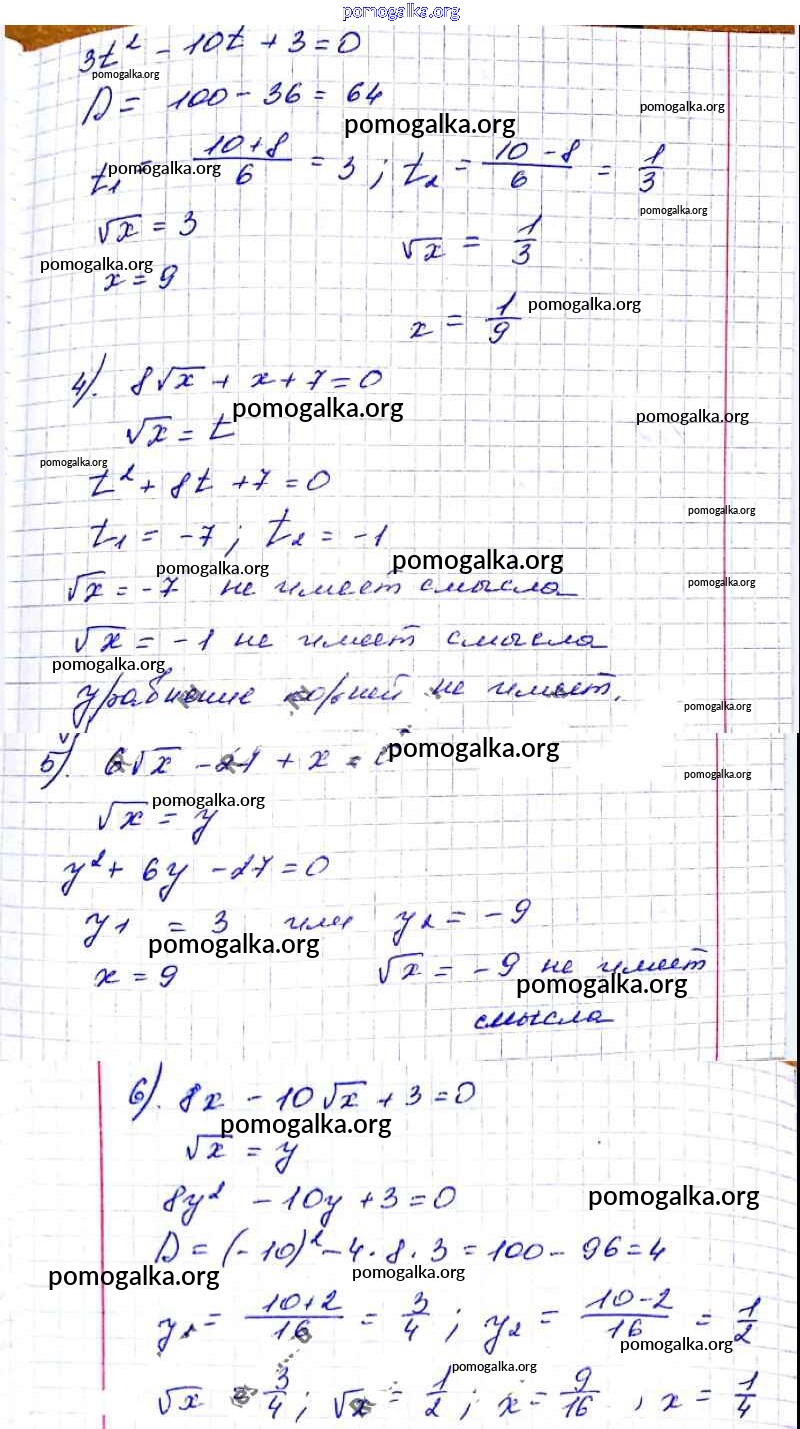 pomogalka.org
3t² - 10t + 3 = 0
pomogalka.org
D = 100 - 36 = 64
pomogalka.org
pomogalka.org
t₁ = (10+8)/6 = 3 ; t₂ = (10-8)/6 = 1/3
pomogalka.org
pomogalka.org
√x = 3 √x = 1/3
pomogalka.org
x = 9
x = 1/9
pomogalka.org
4). 8√x + x + 7 = 0
pomogalka.org
pomogalka.org
√x = t
pomogalka.org
t² + 8t + 7 = 0
pomogalka.org
t₁ = -7 ; t₂ = -1
pomogalka.org
pomogalka.org
pomogalka.org
√x = -7 не имеет смысла
√x = -1 не имеет смысла
pomogalka.org
уравнение корней не имеет.
pomogalka.org
pomogalka.org
5). 6√x - + x =
pomogalka.org
pomogalka.org
√x = y
y² + 6y - 27 = 0
y₁ = 3 или y₂ = -9
pomogalka.org
x = 9 √x = -9 не имеет
pomogalka.org
смысла
6). 8x - 10√x + 3 = 0
pomogalka.org
√x = y
8y² - 10y + 3 = 0
pomogalka.org
D = (-10)² - 4·8·3 = 100 - 96 = 4
pomogalka.org
pomogalka.org
y₁ = (10+2)/16 = 3/4 ; y₂ = (10-2)/16 = 1/2
pomogalka.org
pomogalka.org
√x = 3/4 ; √x = 1/2 ; x = 9/16 , x = 1/4